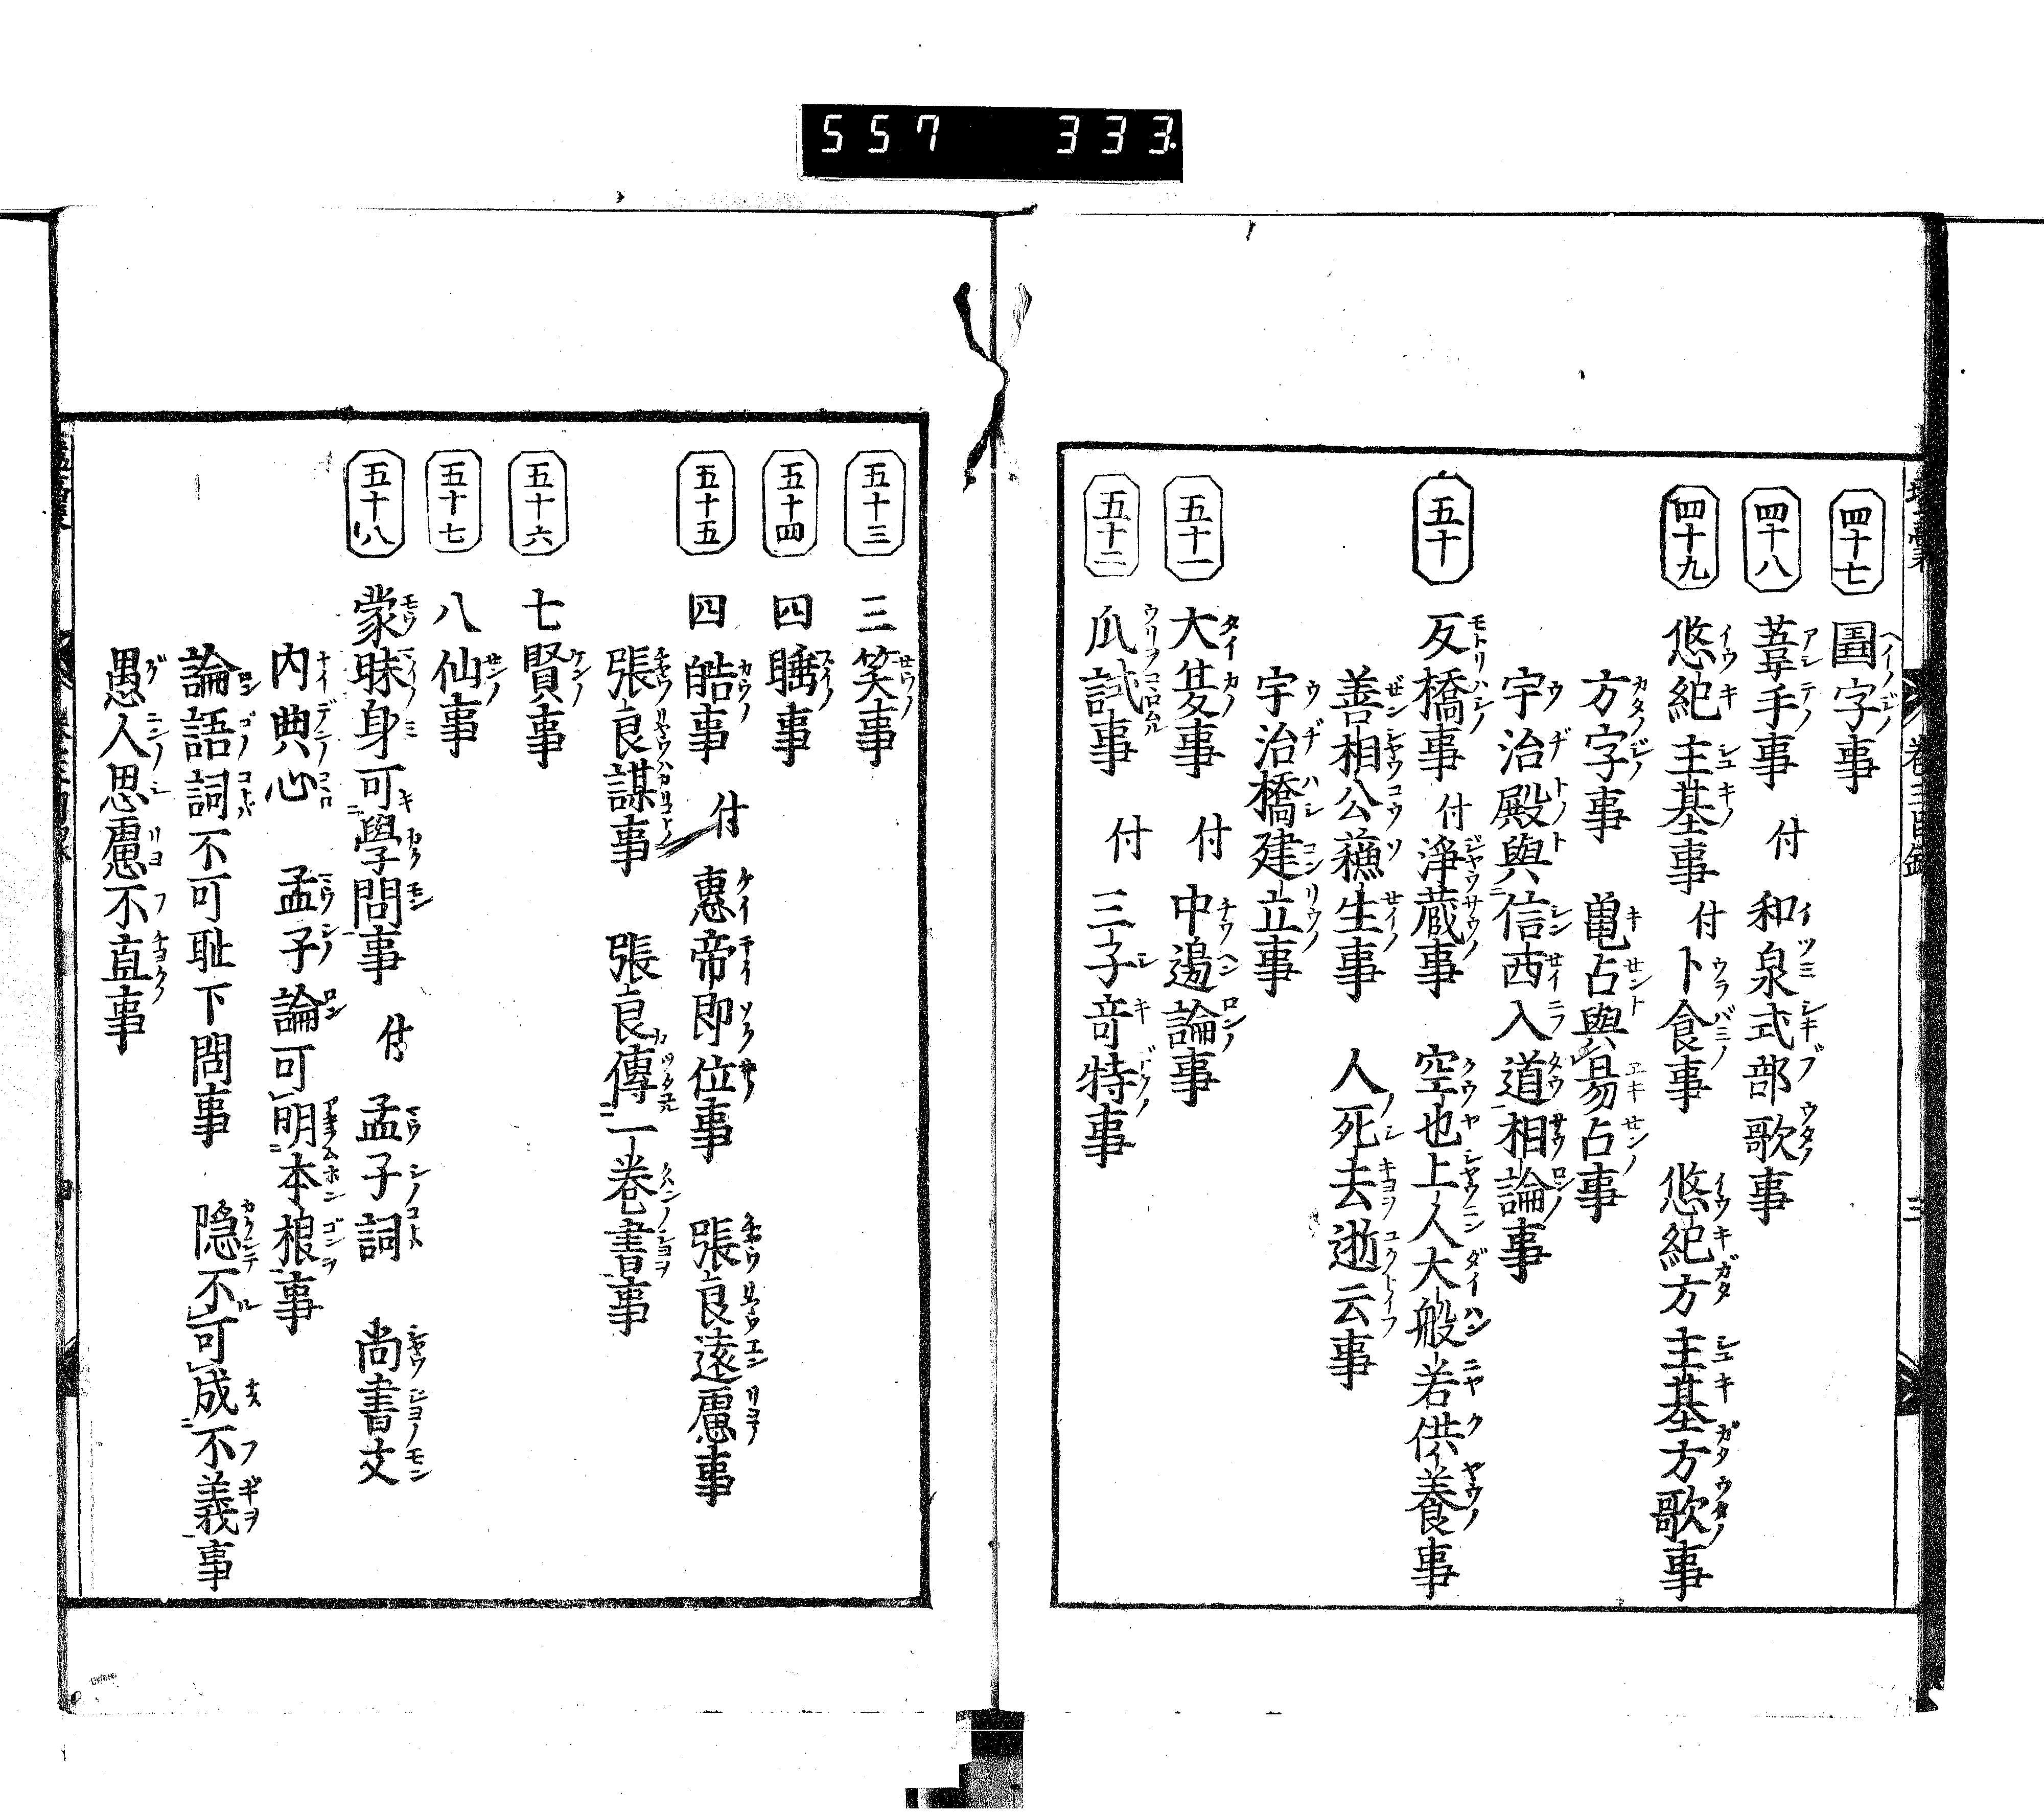 557 333
四十七 圕字事
四十八 葦手事 付 和泉式部歌事
四十九 悠紀主基事 付 卜食事 悠紀方主基方歌事
方字事 亀占與易占事
宇治殿與信西入道相論事
五十 反橋事 付 淨藏事 空也上人大般若供養事
善相公蘓生事 人死去逝云事
宇治橋建立事
五十一 大夏事 付 中邊論事
五十二 瓜試事 付 三子竒特事
五十三 三笑事
五十四 四睡事
五十五 四皓事 付 惠帝即位事 張良遠慮事
張良謀事 張良傳一卷書事
五十六 七賢事
五十七 八仙事
五十八 蒙昧身可學問事 付 孟子詞 尚書文
内典心 孟子論可明本根事
論語詞不可耻下問事 隠不可成不義事
愚人思慮不直事